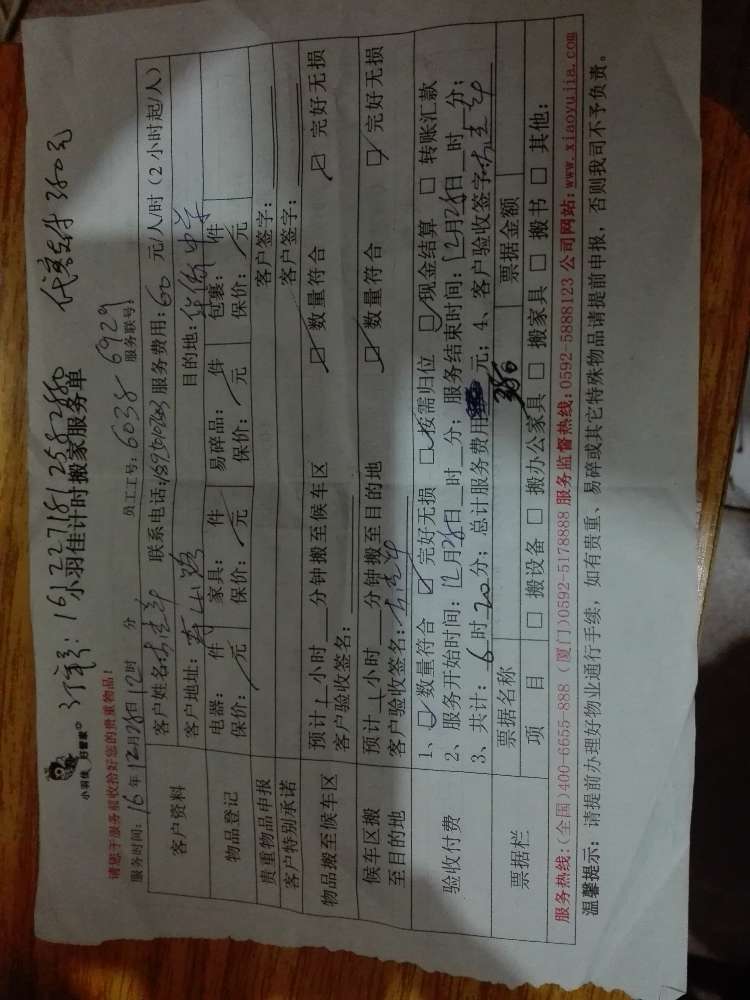 订单号:161227181258280 代客支付 380元
小羽佳 好管家
小羽佳计时搬家服务单
请您于服务前收拾好您的贵重物品!
员工工号:6038 6929
服务联号:
服务时间:16年12月28日12时 分
客户资料
客户姓名: 联系电话: 服务费用:60元/人/时(2小时起/人)
客户地址: 目的地:华侨中学
物品登记
电器: 件 家具: 件 易碎品: 件 包裹: 件
保价: 元 保价: 元 保价: 元 保价: 元
贵重物品申报 客户签字:
客户特别承诺 客户签字:
物品搬至候车区
预计1小时 分钟搬至候车区 ☑数量符合 ☑完好无损
客户验收签名:
候车区搬至目的地
预计1小时 分钟搬至目的地 ☑数量符合 ☑完好无损
客户验收签名:
验收付费
1、☑数量符合 ☑完好无损 ☑按需归位 ☑现金结算 □转账汇款
2、服务开始时间:12月28日 时 分;服务结束时间:12月28日 时 分;
3、共计:6时20分;总计服务费用 元;4、客户验收签字:
380
票据栏
票据名称 票据金额
项目 □搬设备 □搬办公家具 □搬家具 □搬书 □其他:
服务热线:(全国)400-6655-888 (厦门)0592-5178888 服务监督热线:0592-5888123 公司网站:www.xiaoyujia.com
温馨提示:请提前办理好物业通行手续,如有贵重、易碎或其它特殊物品请提前申报,否则我司不予负责。